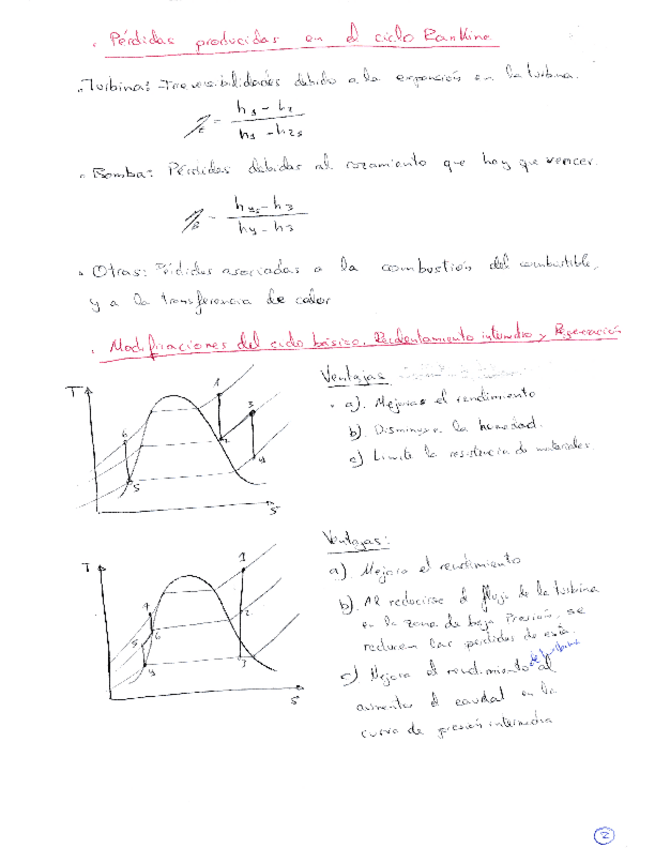 . Pérdidas producidas en el ciclo Rankine
. Turbina: Irreversibilidades debido a la expansión en la turbina.
η_t = (h1 - h2) / (h1 - h2s)
. Bomba: Pérdidas debidas al rozamiento que hay que vencer.
η_B = (h4s - h3) / (h4 - h3)
. Otras: Pérdidas asociadas a la combustión del combustible,
y a la transferencia de calor
. Modificaciones del ciclo básico. Recalentamiento intermedio y Regeneración
Ventajas
. a). Mejoras el rendimiento
b). Disminuye la humedad.
c) Limite la resistencia de materiales.
T
1
3
6
2
4
5
S
Ventajas:
a) Mejora el rendimiento
b). Al reducirse el flujo de la turbina
en la zona de baja Presión, se
reducen las pérdidas de esta.
c) Mejora el rendimiento de turbina al
aumentar el caudal en la
curva de presión intermedia
T
1
7
2
5
6
4
3
S
2